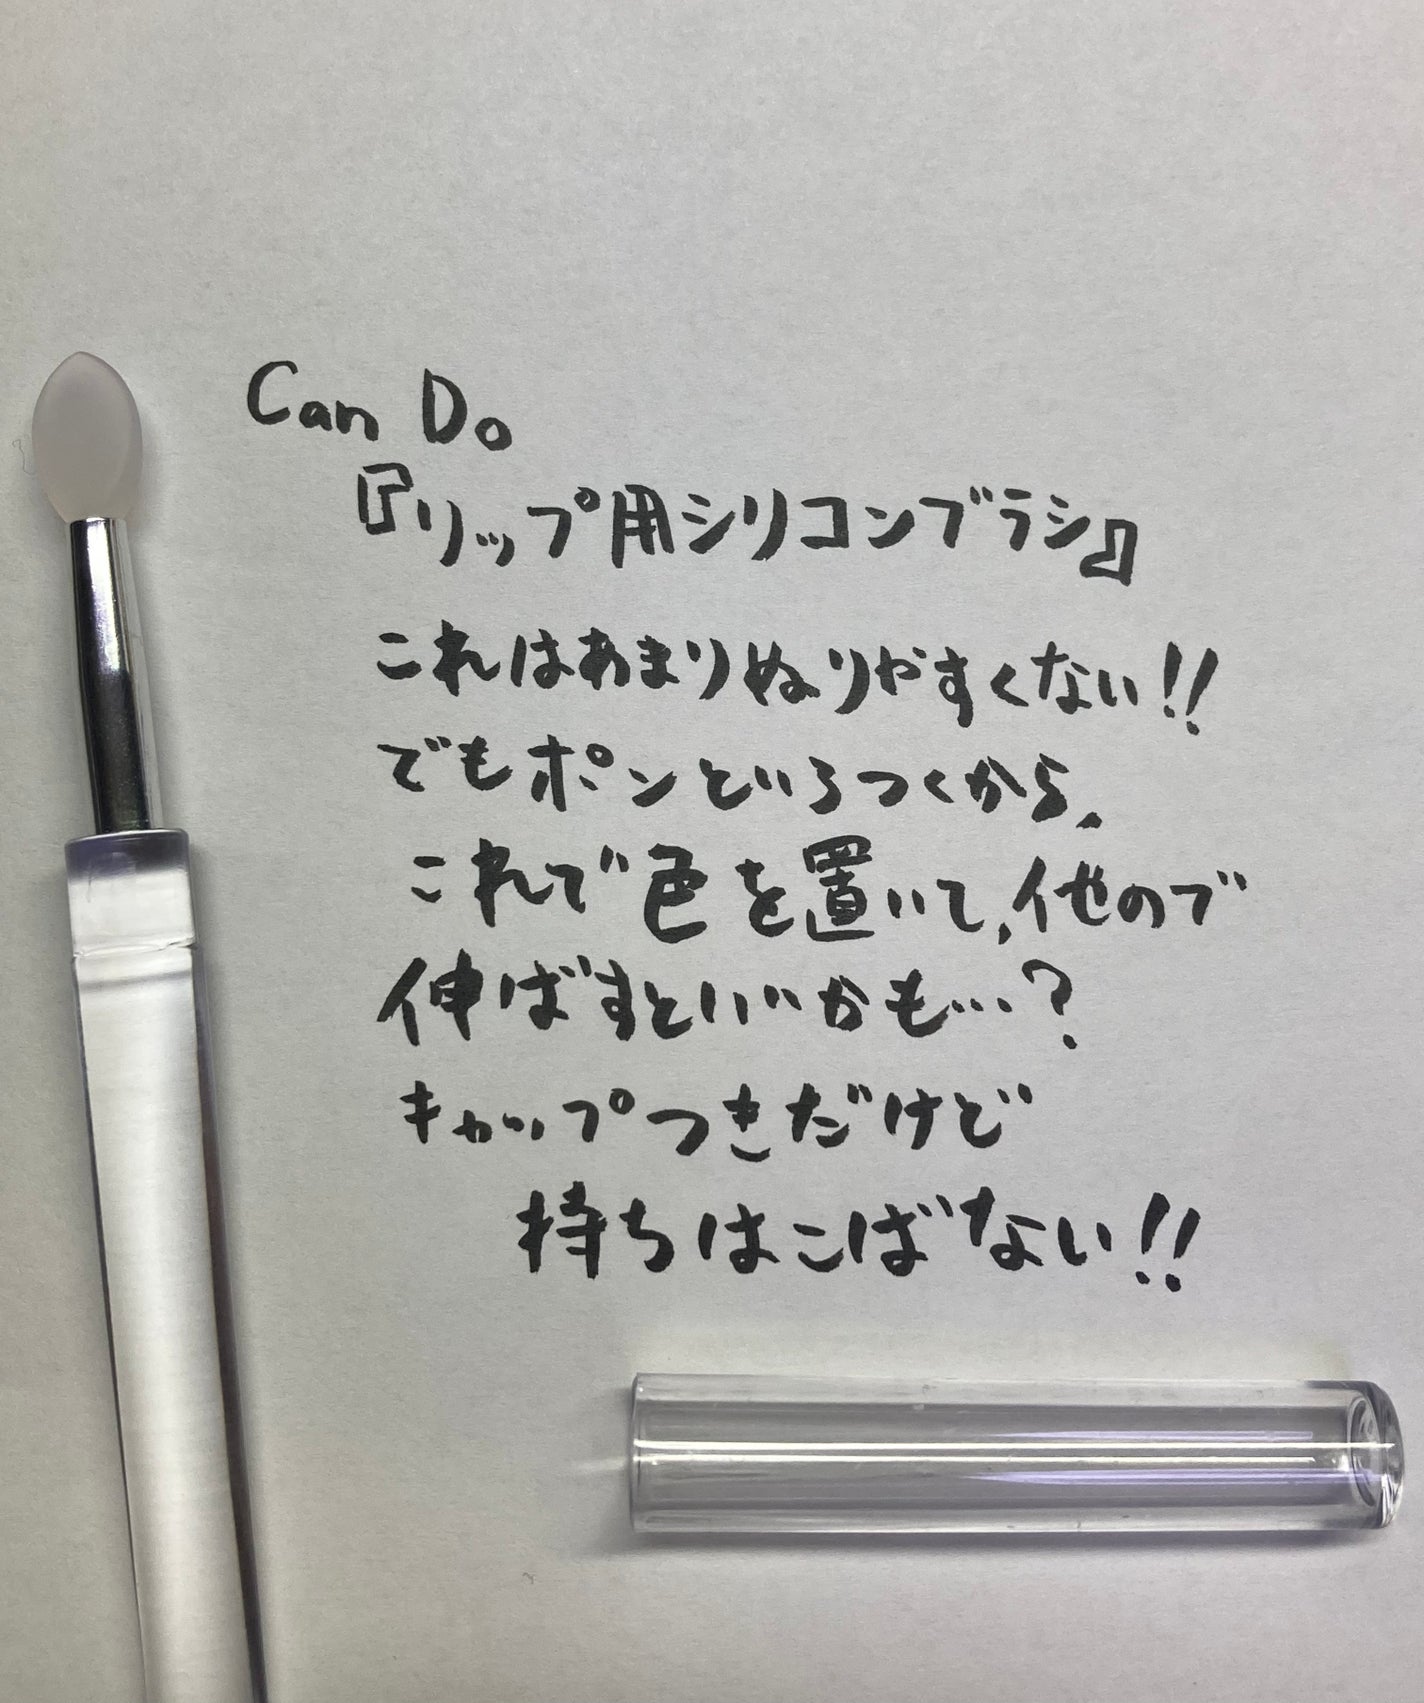 Can Do
『リップ用シリコンブラシ』
これはあまりぬりやすくない!!
でもポンといろつくから、
これで色を置いて、他ので
伸ばすといいかも…?
キャップつきだけど
持ちはこばない!!